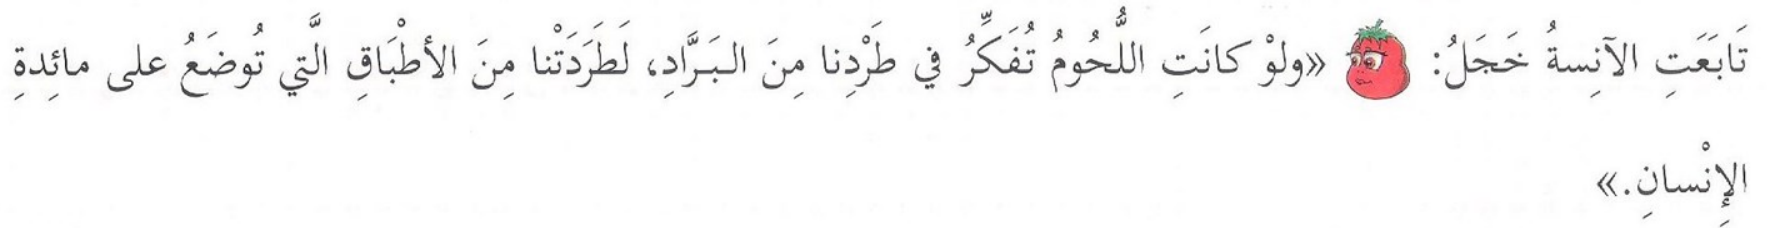 تَابَعَتِ الآنِسةُ خَجَلُ: «ولوْ كانَتِ اللُّحُومُ تُفَكِّرُ في طَرْدِنا مِنَ البَرَّادِ، لَطَرَدَتْنا مِنَ الأطْبَاقِ الَّتي تُوضَعُ على مائِدةِ
الإِنْسانِ.»